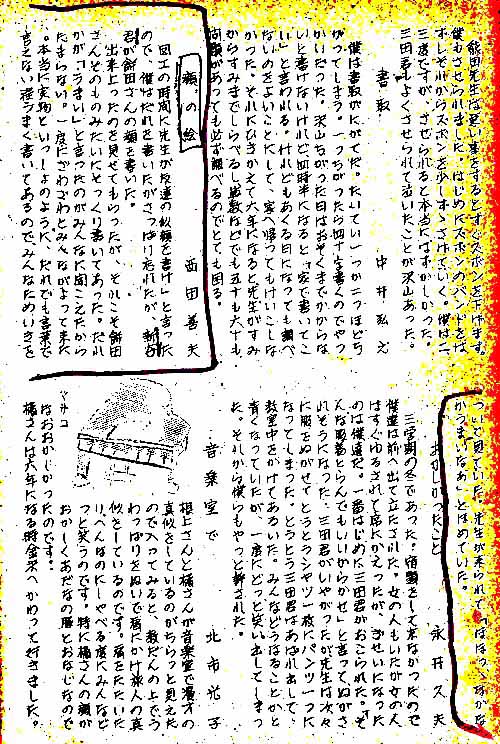 飯田先生は悪い事をするとすぐズボンを下げます。
僕もさせられました。はじめにズボンのバンドをは
ずしそれからズボンを少しずつさげていく。僕は二
三度ですが、させられると本当にはずかしかった。
三田君もよくさせられて泣いたことが沢山あった。
書取　中井弘之
僕は書取がにがてだ。たいてい一つか二つほどち
がってしまう。一つちがったら四十字書くのでやっ
かいだった。沢山ちがった日はおそくまでかからな
いと書けないけれど四時半になると「家で書いてこ
い」と言われる。けれどもあくる日になっても調べ
ないのをよいことにして、家へ帰ってもけいこしな
かった。それにひきかえて六年になると先生がすみ
からすみまでしらべるし算数などでも五十も六十も
問題があっても必ず調べるのでとても困る。
顔の絵　西田善夫
図工の時間に先生が「友達の似顔を書け」と言った
ので、僕はだれを書いたかさっぱり忘れたが
君が飯田さんの顔を書いた。
出来上ったのを見せてもらったが、それこそ飯田
さんそのものみたいにそっくり書いてあった。だれ
かが「うまい」と言ったのがみんなに聞こえたから
たまらない。一度にざわざわとみんながよって来た
。本当に実物といっしょのように、だれでも言葉で
言えない程うまく書いてあるのでみんなためいきを
ついて見ていた。先生が来られて「
がうまいなあ」とほめていた。
おかしかったこと　永井久夫
三学期の冬であった。宿題をして来なかったので
僕達は前へ出て立たされた。女の人もいたが女の人
はすぐゆるされて席にかえったが、ぎせいになった
のは僕達だ。一番はじめに三田君がおこられた。「そ
んな服着とらんでもいいからかせ」と言ってぬがさ
れそうになった。三田君がいやがったが先生は次々
に服をぬがせてとうとうシャツ一枚にパンツ一つに
なってしまった。とうとう三田君はあばれ出して、
教室中をかけてあるいた。みんなどうなることかと
青くなっていたが、一度にどっと笑い出してしまっ
た。それから僕らもやっと許された。
音楽室で　北市光子
根上さんと橘さんが音楽室で漫才の
真似をしているのがちらっと見えた
ので入ってみると、教だんの上でう
わっぱりをぬいで肩にかけ旅人の真
似をしているのです。肩をたたいた
りへんなのにしゃべる度にみんなど
っと笑うのです。特に橘さんの顔が
おかしくあだなの
なおおかしかったのです。
橘さんは六年になる時金沢へかわって行きました。
マサコ